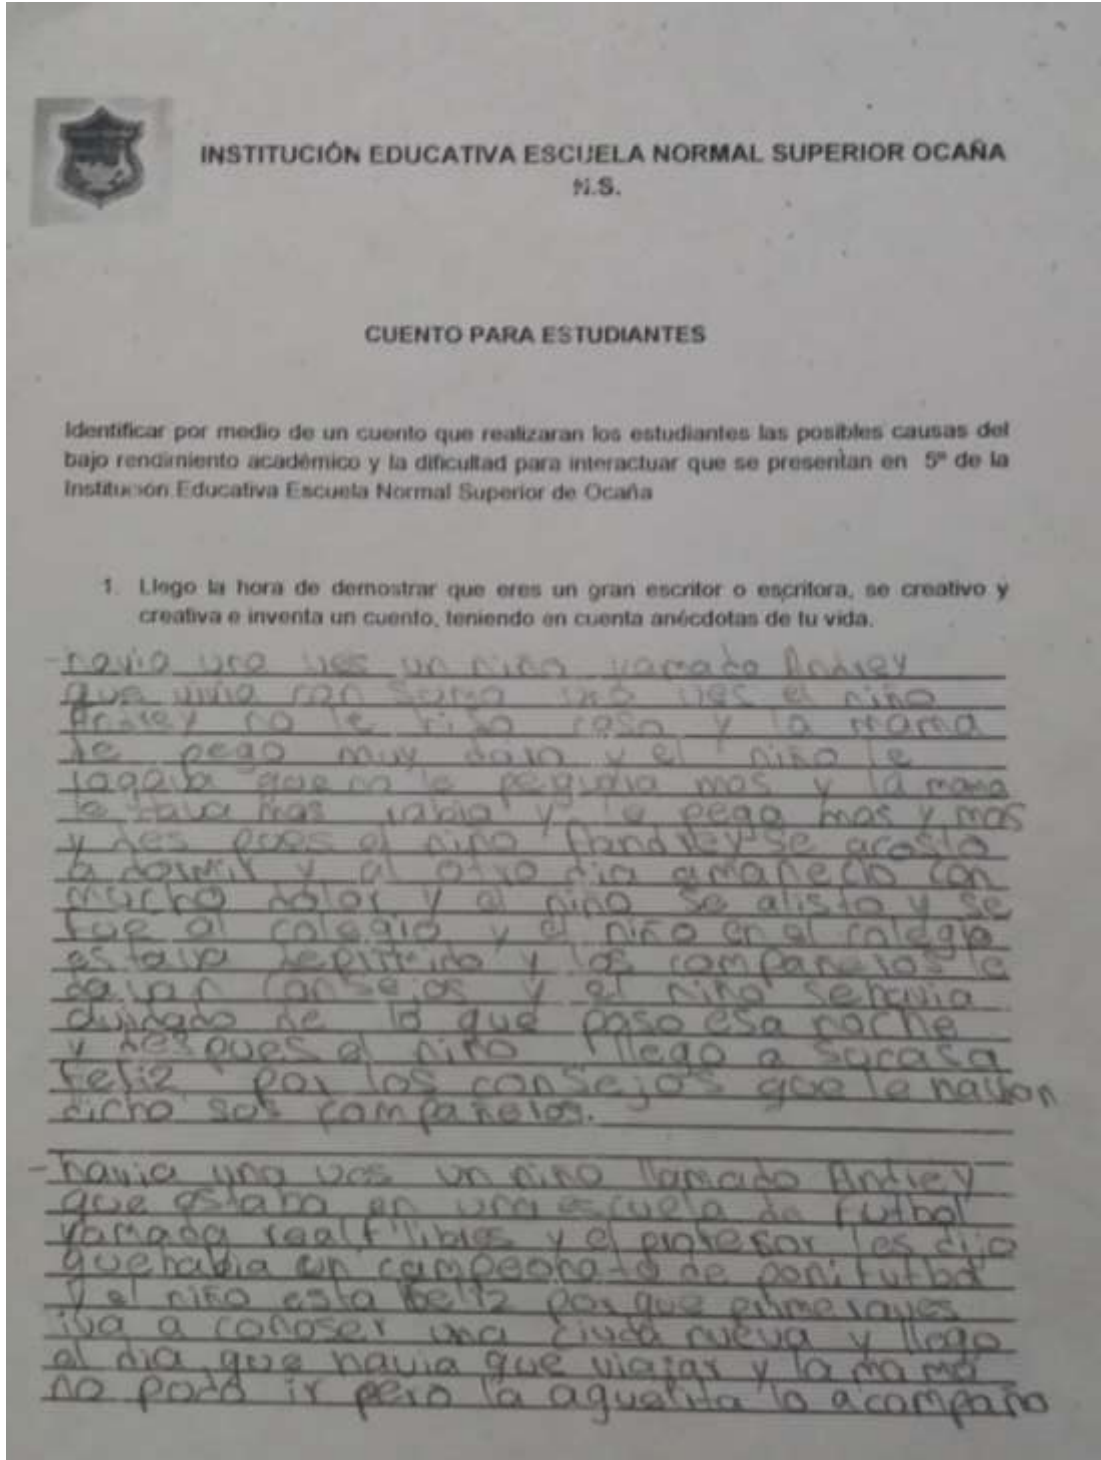 INSTITUCIÓN EDUCATIVA ESCUELA NORMAL SUPERIOR OCAÑA
N.S.
CUENTO PARA ESTUDIANTES
Identificar por medio de un cuento que realizaran los estudiantes las posibles causas del
bajo rendimiento académico y la dificultad para interactuar que se presentan en 5º de la
Institución Educativa Escuela Normal Superior de Ocaña
1. Llego la hora de demostrar que eres un gran escritor o escritora, se creativo y
creativa e inventa un cuento, teniendo en cuenta anécdotas de tu vida.
-havia una ves un niño yamado Andrey
que vivia con ves el niño
Andrey no le caso y la mama
le pego muy duro y el niño le
que no le mas y la mama
le mas rabia y le pego mas y mas
y des pues el niño se acosto
a dormir y al otro dia amanecio con
mucho dolor y el niño se alisto y se
fue al colegio y el niño en el colegio
estava y los compañeros le
consejos y el niño se havia
de lo que paso esa noche
y despues el niño llego a sucasa
feliz por los consejos que le havian
dicho sus compañeros.
-havia una ves un niño llamado Andrey
que estaba en una escuela de futbol
yamada real y el profesor les dijo
quehabia un campeonato de ponifutbol
y el niño esta feliz por que
iva a conoser una ciuda nueva y llego
el dia que havia que viajar y la mama
no ir pero la aguelita lo acompaño